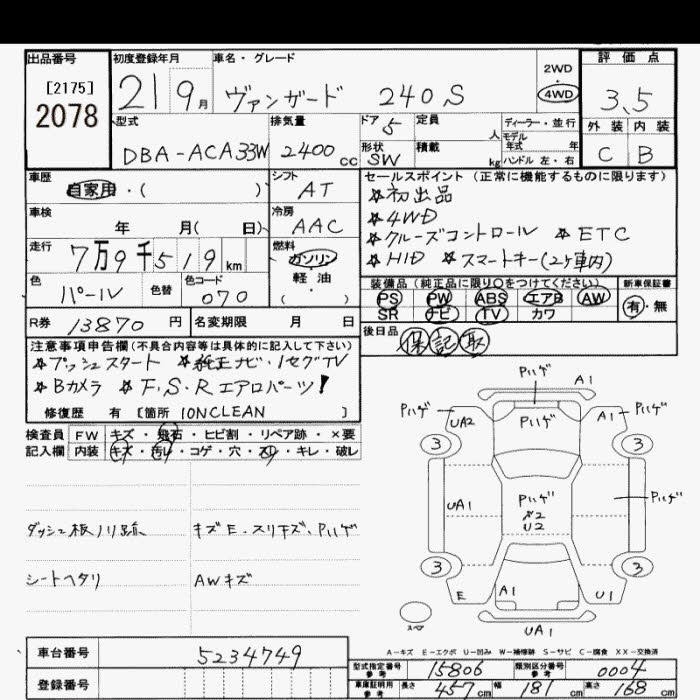 出品番号
[2175]
2078
初度登録年月
21 9月
車名・グレード
ヴァンガード 240S
2WD
・
4WD
評価点
3.5
外装 内装
C B
型式
DBA-ACA33W
排気量
2400cc
ドア 5
形状 SW
定員 人
積載 kg
ディーラー・並行
モデル年式 年式
ハンドル 左・右
車歴
自家用・( )
シフト
AT
セールスポイント(正常に機能するものに限ります)
☆初出品
☆4WD
☆クルーズコントロール ☆ETC
☆HID ☆スマートキー(2ケ車内)
車検
年 月( 日)
冷房
AAC
走行
7万9千519km
燃料
ガソリン
軽油
・( )
色
パール
色替
色コード
070
装備品(純正品に限り○をつけてください) 新車保証書
PS PW ABS エアB AW 有・無
SR ナビ TV カワ
R券 13870円
名変期限 月 日
後日品
保 記 取
注意事項申告欄(不具合内容等は具体的に記入して下さい)
☆プッシュスタート ☆純正ナビ・1セグTV
☆Bカメラ ☆F,S,Rエアロパーツ!
修復歴 有 [箇所 IONCLEAN ]
検査員 FW キズ・飛石・ヒビ割・リペア跡・×要
記入欄 内装 キズ・汚れ・コゲ・穴・スリ・キレ・破レ
ダッシュ板ノリ跡、 キズE・スリキズ、Pハゲ
シートヘタリ AWキズ
Pハゲ A1
Pハゲ UA2 Pハゲ A1 Pハゲ
3 3
UA1 Pハゲ U2 Pハゲ
3 3
E A1 U1
スペア
UA1
A-キズ E-エクボ U-凹み W-補修跡 S-サビ C-腐食 XX-交換済
車台番号 5234749
登録番号
型式指定番号 参考 15806 類別区分番号 参考 0004
車庫証明用 参考 長さ 457cm 幅 181cm 高さ 168cm